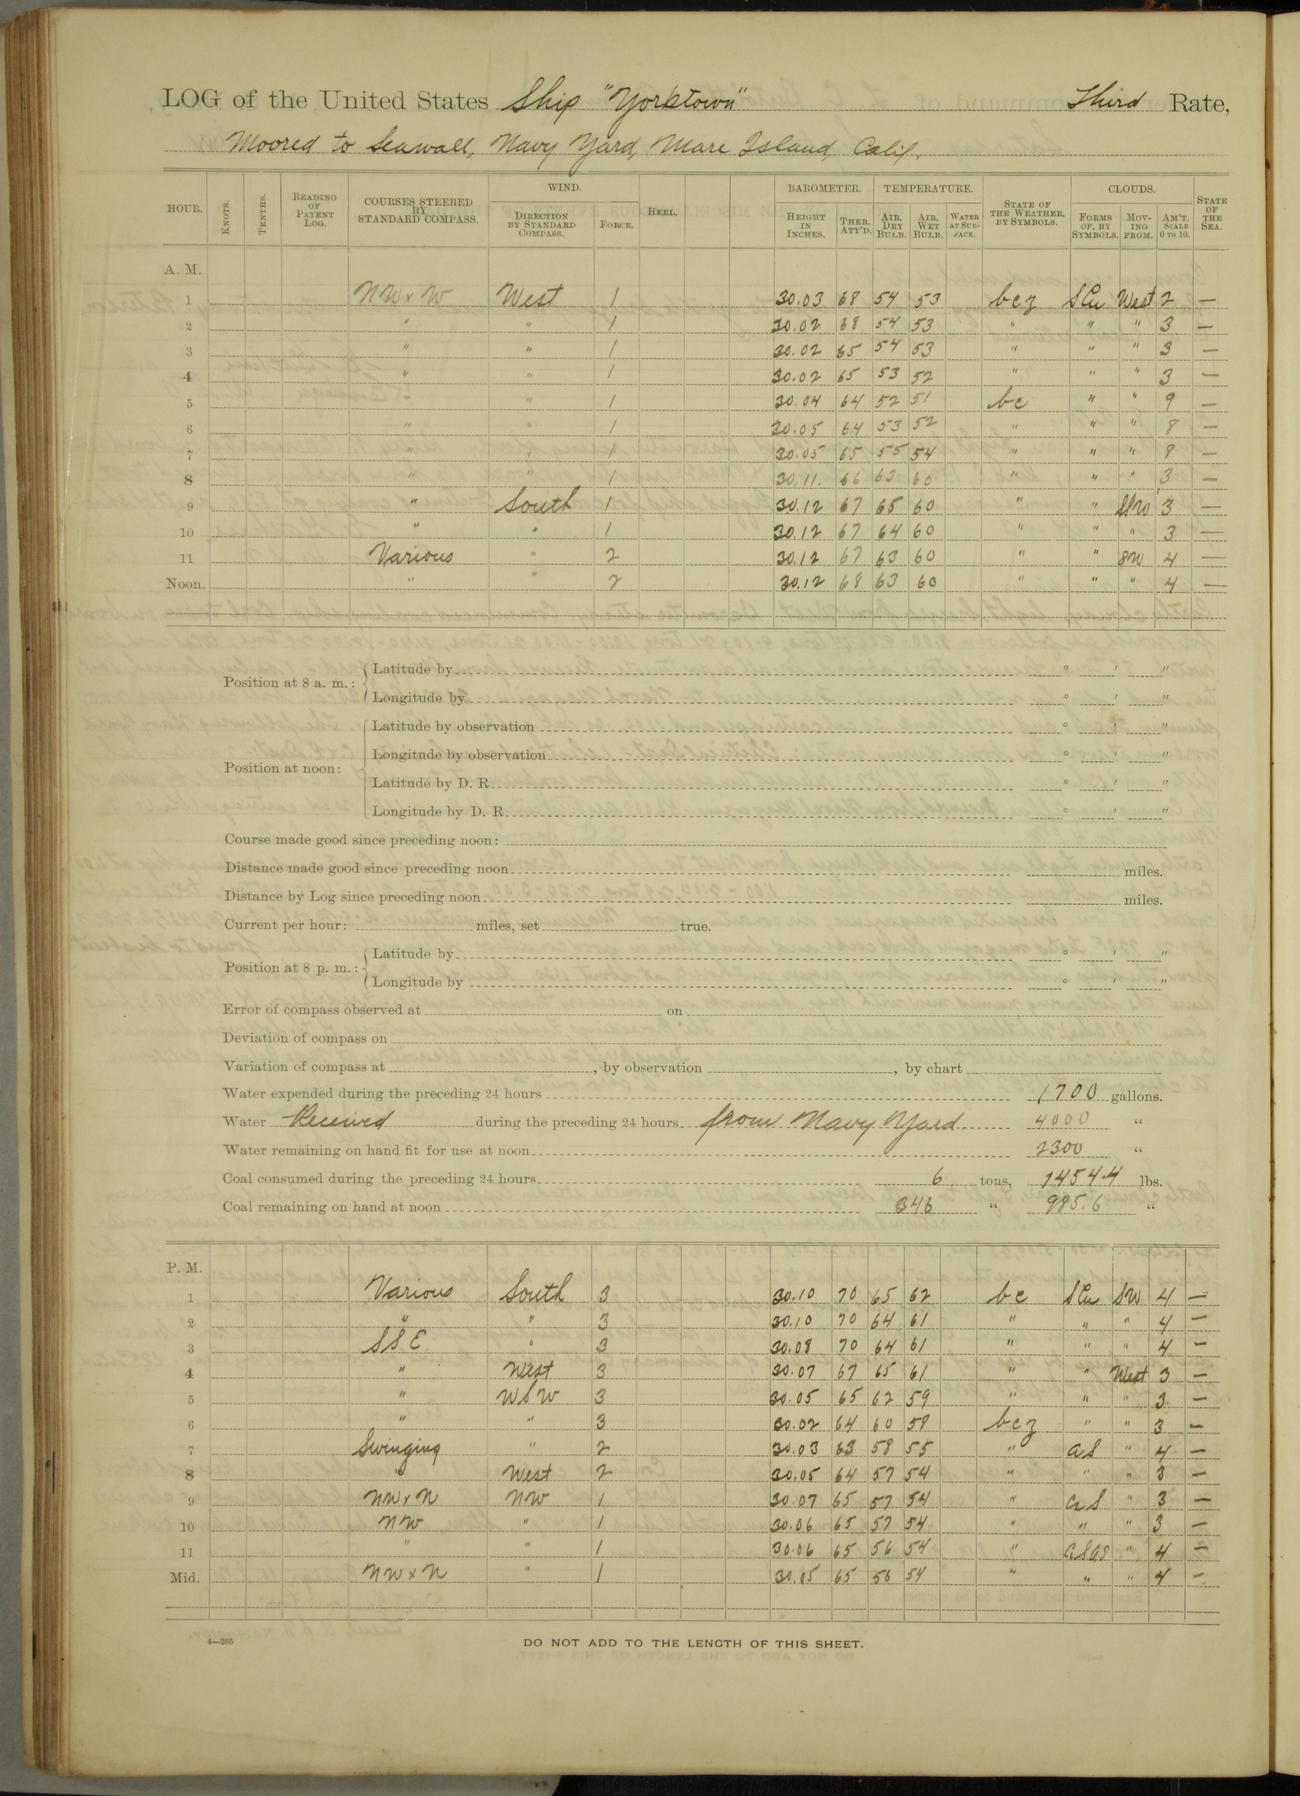 LOG of the United States Ship "Yorktown" Third Rate,
Moored to Seawall, Navy Yard, Mare Island, Calif.
HOUR. KNOTS. TENTHS. READING OF PATENT LOG. COURSES STEERED BY STANDARD COMPASS. WIND. DIRECTION BY STANDARD COMPASS. FORCE. HEEL. BAROMETER. HEIGHT IN INCHES. THER. ATT'D. TEMPERATURE. AIR, DRY BULB. AIR, WET BULB. WATER AT SUR-FACE. STATE OF THE WEATHER, BY SYMBOLS. CLOUDS. FORMS OF, BY SYMBOLS. MOV-ING FROM. AM'T. SCALE 0 TO 10. STATE OF THE SEA.
A. M.
1 NW x W West 1 30.03 68 54 53 bcz SCu West 2 —
2 " " 1 30.02 68 54 53 " " " 3 —
3 " " 1 30.02 65 54 53 " " " 3 —
4 " " 1 30.02 65 53 52 " " " 3 —
5 " " 1 30.04 64 52 51 bc " " 9 —
6 " " 1 30.05 64 53 52 " " " 8 —
7 " " 1 30.05 65 55 54 " " " 8 —
8 " " 1 30.11 66 63 60 " " " 3 —
9 " South 1 30.12 67 65 60 " " SW 3 —
10 " " 1 30.12 67 64 60 " " " 3 —
11 Various " 2 30.12 67 63 60 " " SW 4 —
Noon. " " 2 30.12 68 63 60 " " " 4 —
Position at 8 a. m.: Latitude by ° ' "
Longitude by ° ' "
Position at noon: Latitude by observation ° ' "
Longitude by observation ° ' "
Latitude by D. R. ° ' "
Longitude by D. R. ° ' "
Course made good since preceding noon:
Distance made good since preceding noon miles.
Distance by Log since preceding noon miles.
Current per hour: miles, set true.
Position at 8 p. m.: Latitude by ° ' "
Longitude by ° ' "
Error of compass observed at on
Deviation of compass on
Variation of compass at , by observation , by chart
Water expended during the preceding 24 hours 1700 gallons.
Water Received during the preceding 24 hours from Navy Yard 4000 "
Water remaining on hand fit for use at noon 2300 "
Coal consumed during the preceding 24 hours 6 tons, 1454.4 lbs.
Coal remaining on hand at noon 346 " 985.6 "
P. M.
1 Various South 3 30.10 70 65 62 bc SCu SW 4 —
2 " " 3 30.10 70 64 61 " " " 4 —
3 SSE " 3 30.08 70 64 61 " " " 4 —
4 " West 3 30.07 67 65 61 " " West 3 —
5 " WSW 3 30.05 65 62 59 " " " 3 —
6 " " 3 30.02 64 60 58 bcz " " 3 —
7 Swinging " 2 30.03 63 58 55 " aS " 4 —
8 " West 2 30.05 64 57 54 " " " 3 —
9 NW x N NW 1 30.07 65 57 54 " aS " 3 —
10 NW " 1 30.06 65 57 54 " " " 3 —
11 " " 1 30.06 65 56 54 " " 4 —
Mid. NW x N " 1 30.05 65 56 54 " " " 4 —
4—265 DO NOT ADD TO THE LENGTH OF THIS SHEET.